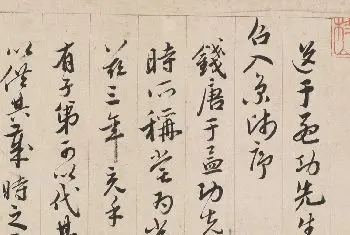 送于孟功先生
召入京師序
錢唐于孟功先
時所稱當為
三年元
有子弟可以代其
以供其 時之